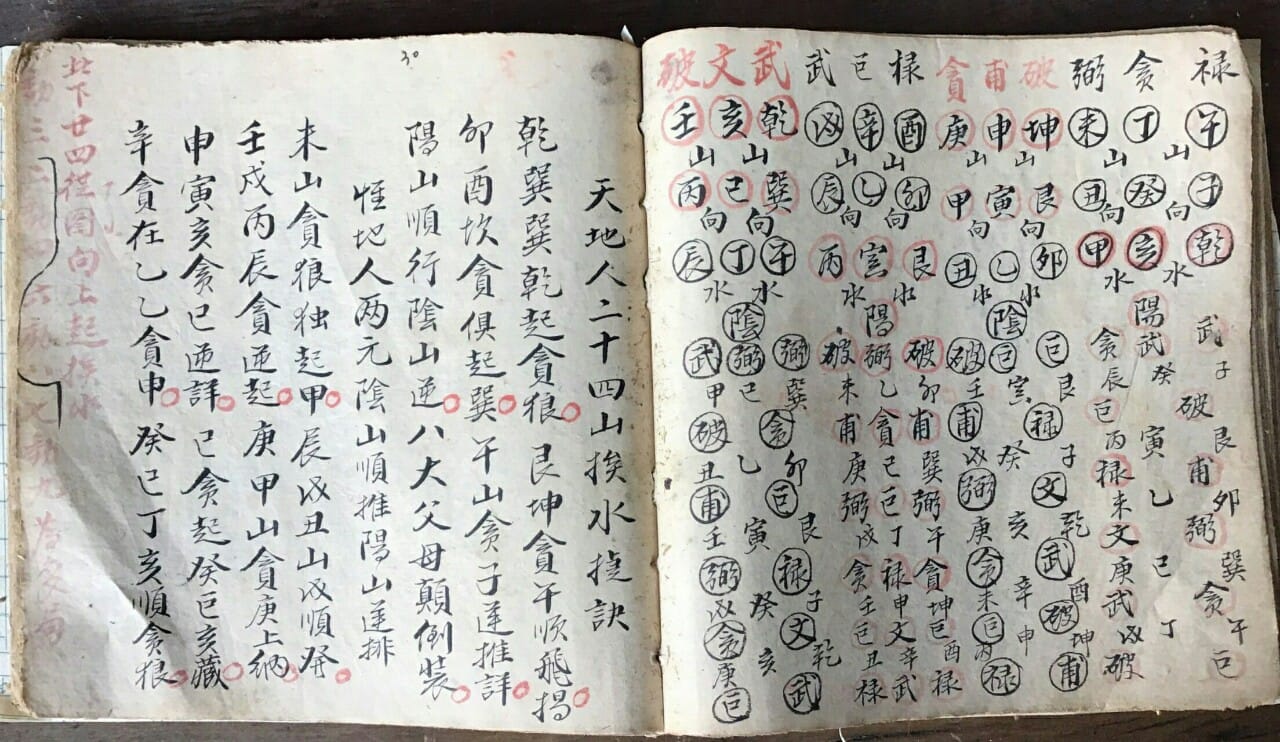 禄午子乾武子破艮甫卯弼巽貪午巨
山向水
貪丁癸亥陽武癸寅乙巳丁
山向水
弼未丑甲貪辰巨丙禄未文庚武戌破
破坤艮卯巨艮禄子文乾武酉破坤甫
山向水
甫申寅乙陰巨寅癸亥辛申
山向水
貪庚甲丑破壬甫戌弼庚貪未巨丙禄
禄酉卯艮破卯甫巽弼午貪坤巨酉禄
山向水
巨辛乙寅陽弼乙貪巳巨丁禄申文辛武
山向水
武戌辰丙破未甫庚弼戌貪壬巨丑禄
武乾巽午弼巽貪卯巨艮禄子文乾武
山向水
文亥巳丁陰弼巳乙寅癸亥
山向水
破壬丙辰武甲破丑甫壬弼戌貪庚巨
天地人二十四山挨水捷訣
乾巽巽乾起貪狼。艮坤貪午順飛揚。
卯酉坎貪俱起巽。午山貪子逆推詳。
陽山順行陰山逆。八大父母顛倒裝。
惟地人两元陰山順推陽山逆排
未山貪狼独起甲。辰戌丑山戌順癸。
壬戌丙辰貪逆起。庚甲山貪庚上納。
申寅亥貪巳逆詳。巳貪起癸巨亥藏。
辛貪在乙乙貪申。癸巳丁亥順貪狼。
此下廿四從圖向上起挨水